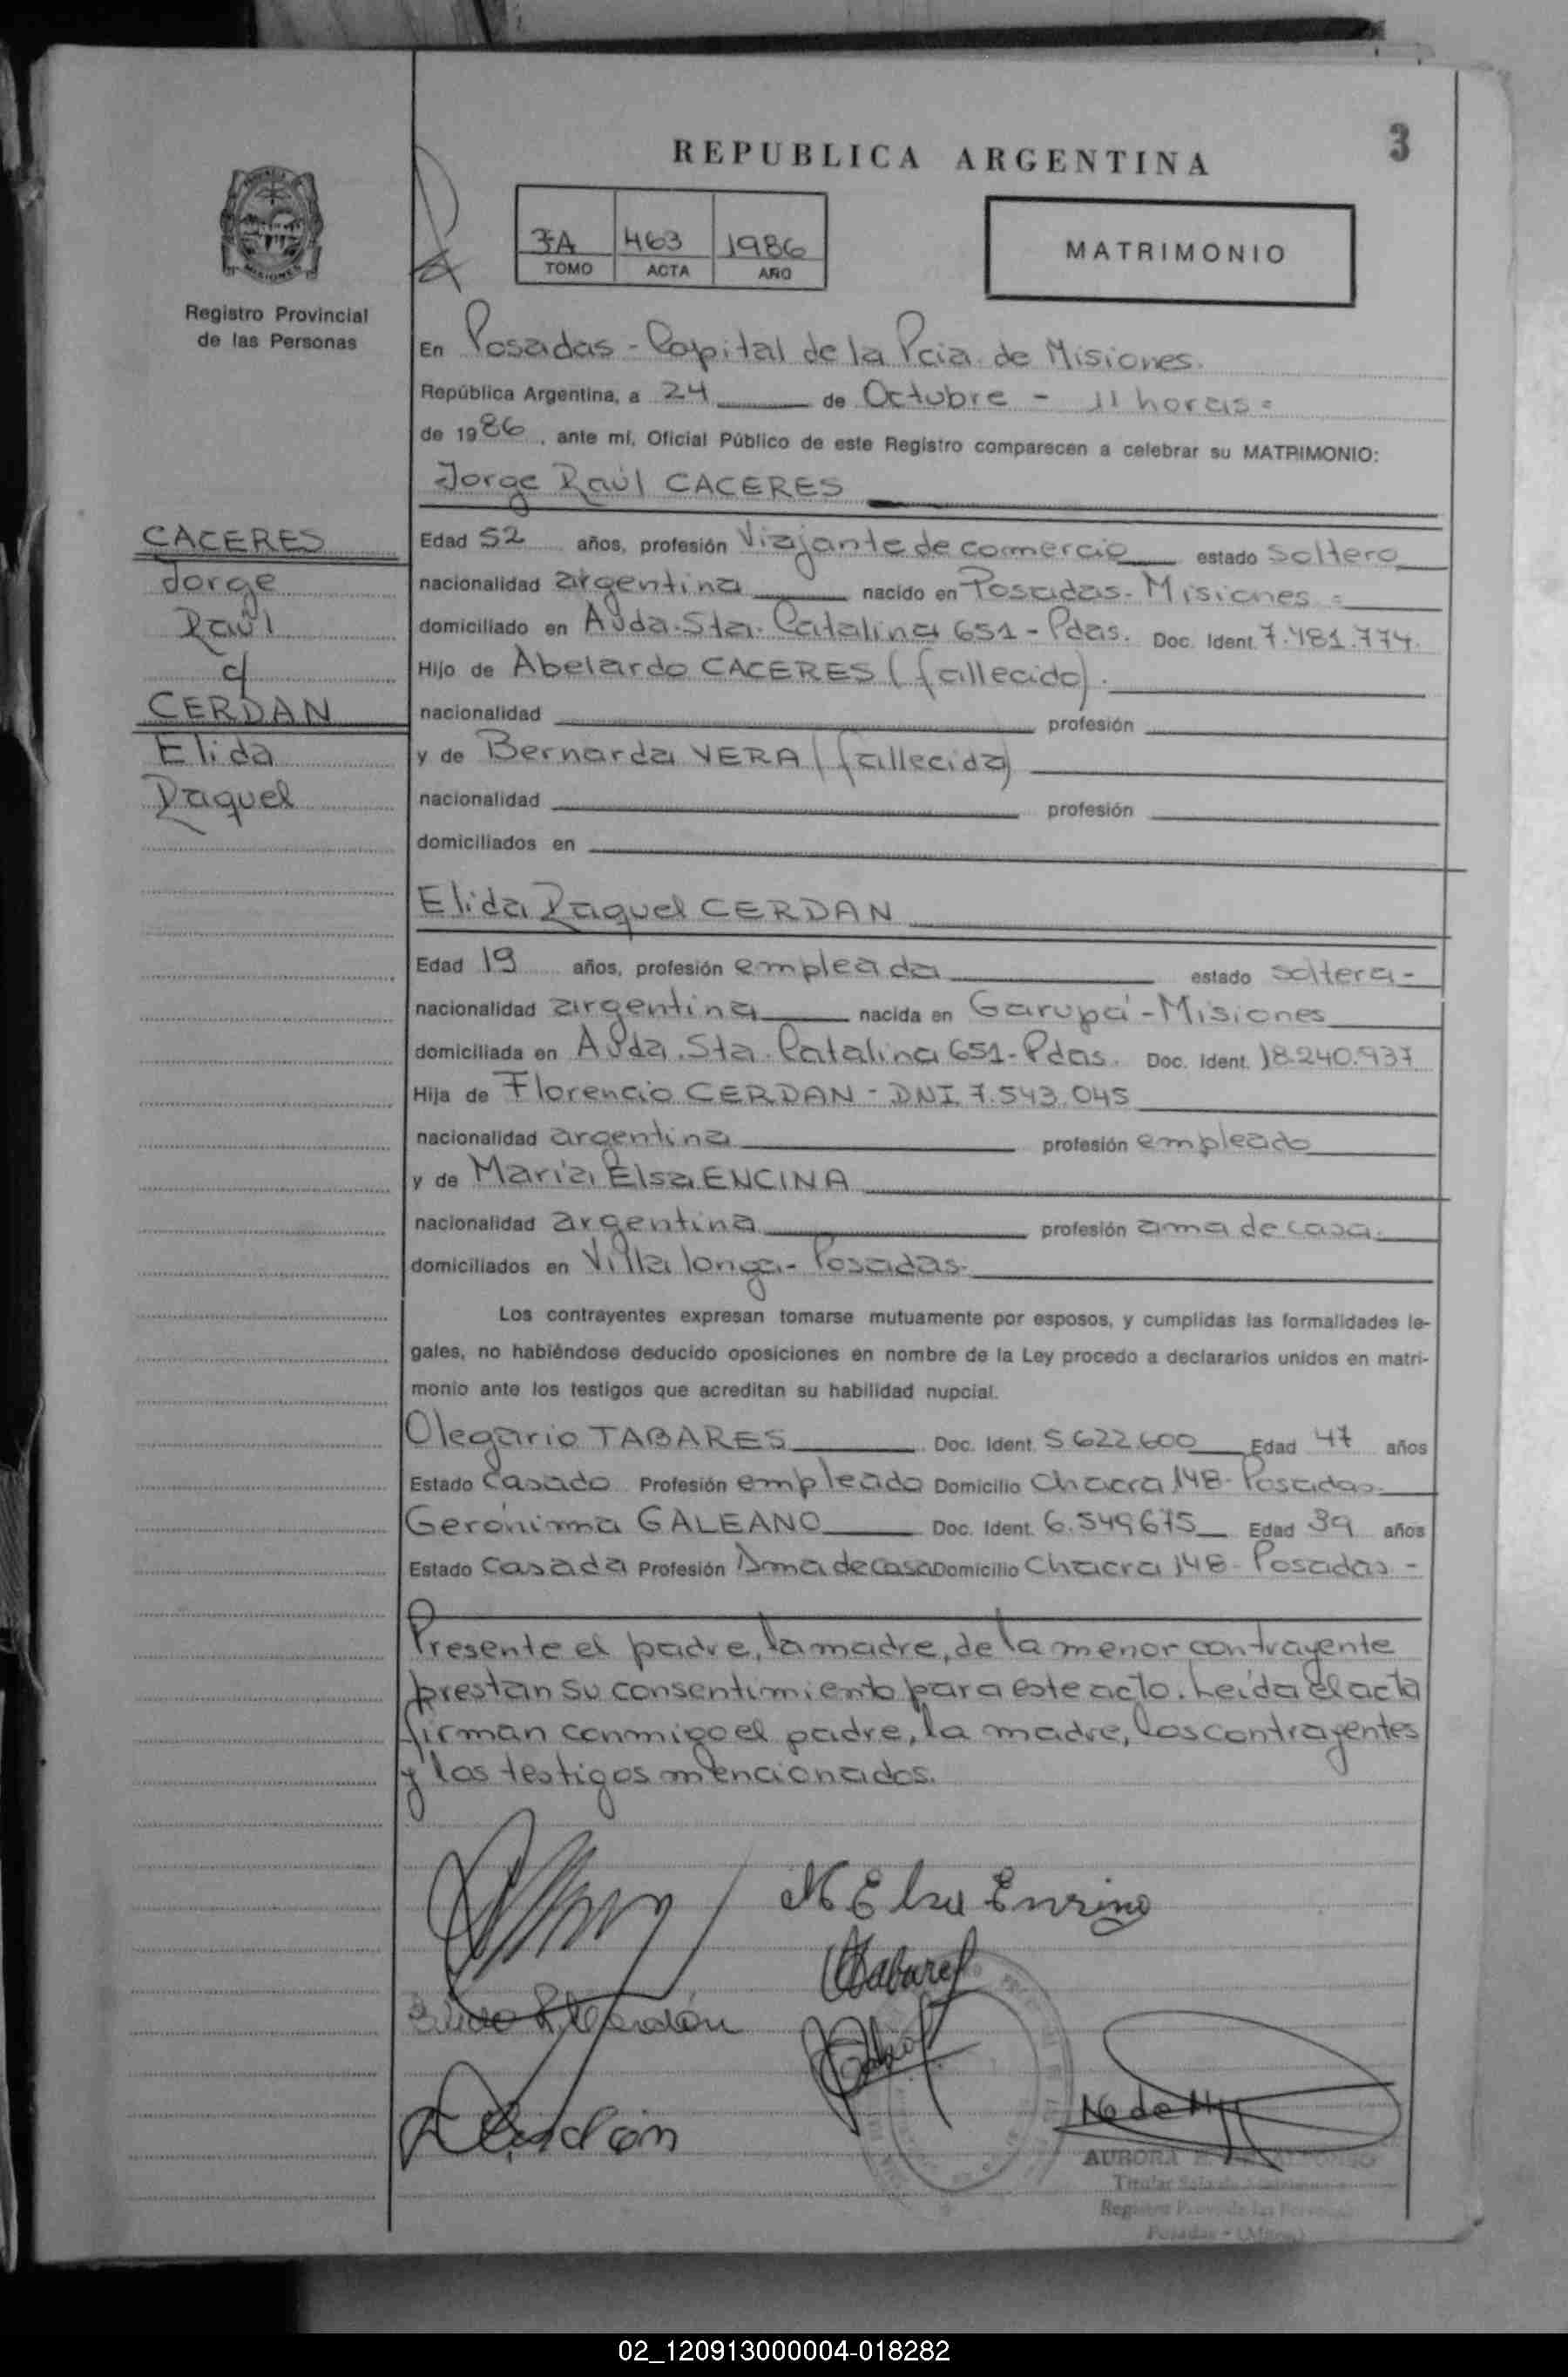 3
REPUBLICA ARGENTINA
MATRIMONIO
7A 463 1986
TOMO ACTA AÑO
Registro Provincial
de las Personas
CACERES
Jorge
Raúl
c/
CERDAN
Elida
Raquel
En Posadas - Capital de la Pcia. de Misiones.
República Argentina, a 24 de Octubre - 11 horas =
de 1986, ante mí, Oficial Público de este Registro comparecen a celebrar su MATRIMONIO:
Jorge Raúl CACERES
Edad 52 años, profesión Viajante de comercio estado soltero
nacionalidad argentina nacido en Posadas - Misiones =
domiciliado en Avda. Sta. Catalina 651 - Pdas. Doc. Ident. 7.481.774.
Hijo de Abelardo CACERES (fallecido).
nacionalidad profesión
y de Bernarda VERA (fallecida)
nacionalidad profesión
domiciliados en
Elida Raquel CERDAN
Edad 19 años, profesión empleada estado soltera -
nacionalidad argentina nacida en Garupá - Misiones
domiciliada en Avda. Sta. Catalina 651 - Pdas. Doc. Ident. 18.240.937
Hija de Florencio CERDAN - DNI 7.543.045
nacionalidad argentina profesión empleado
y de María Elsa ENCINA
nacionalidad argentina profesión ama de casa.
domiciliados en Villa longa - Posadas.
Los contrayentes expresan tomarse mutuamente por esposos, y cumplidas las formalidades le-
gales, no habiéndose deducido oposiciones en nombre de la Ley procedo a declararlos unidos en matri-
monio ante los testigos que acreditan su habilidad nupcial.
Olegario TABARES Doc. Ident. 5.622.600 Edad 47 años
Estado casado Profesión empleado Domicilio Chacra 148 - Posadas.
Gerónima GALEANO Doc. Ident. 6.549.675 Edad 39 años
Estado casada Profesión Ama de casa Domicilio Chacra 148 - Posadas -
Presente el padre, la madre, de la menor contrayente
prestan su consentimiento para este acto. Leída el acta
firman conmigo el padre, la madre, los contrayentes
y los testigos mencionados.
M Elsa Encina
Tabares
AURORA
Titular
Posadas - (Mnes)
02_120913000004-018282